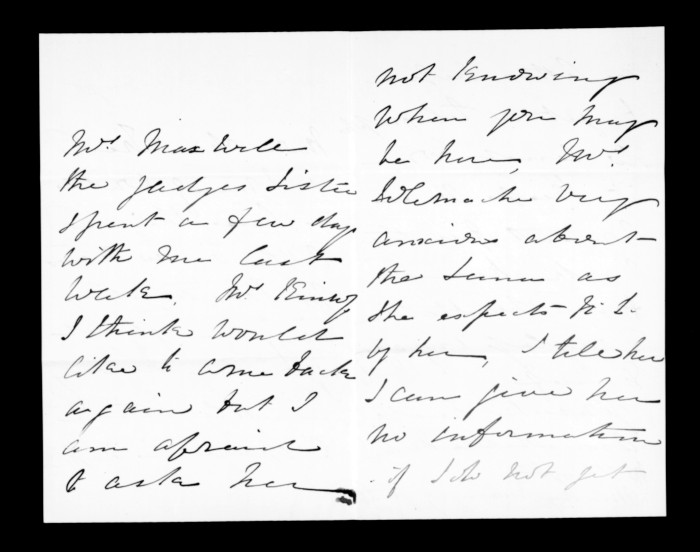 Mrs Maxwell
the Judges Sister
spent a few days
with me last
week. Mrs King
I think would
like to come back
again but I
am afraid
to ask her
not knowing
when you may
be here, Mrs
very
anxious about
the as
she expects to
by her, I tell her
I can give her
no information
if I do not get